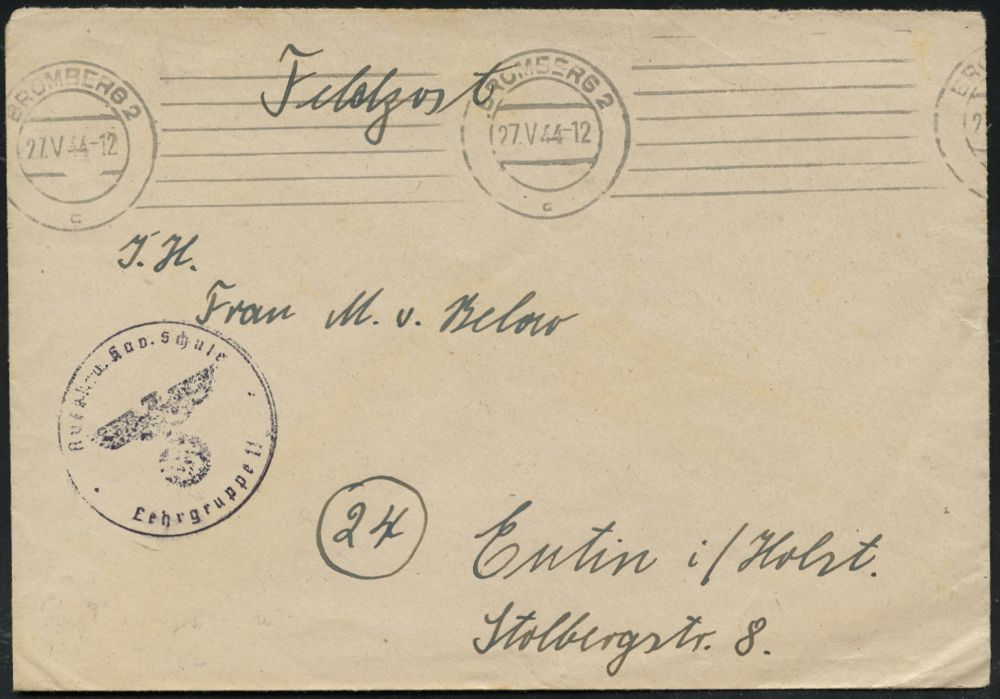 BROMBERG 2
27.V.44-12
c
Feldpost
BROMBERG 2
27.V.44-12
c
J. H.
Frau M. v. Below
Aufkl. u. Kav. Schule
Lehrgruppe II
24
Eutin i/Holst.
Stolbergstr. 8.